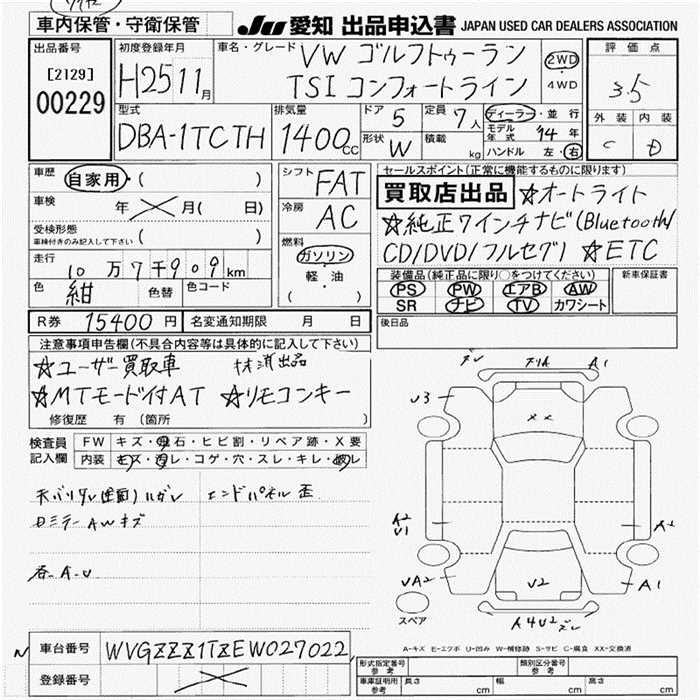 車内保管・守衛保管
JU 愛知 出品申込書 JAPAN USED CAR DEALERS ASSOCIATION
出品番号
[2129]
00229
初度登録年月
H25 11月
車名・グレード
VW ゴルフトゥーラン
TSI コンフォートライン
2WD
・
4WD
評価点
3.5
外装 内装
C D
型式
DBA-1TCTH
排気量
1400cc
ドア 5
形状 W
定員 7人
積載 kg
ディーラー・並行
モデル年式 '14年
ハンドル 左・右
車歴 自家用・( )
車検 年 月( 日)
受検形態
車検付きのみ記入して下さい ( )
走行 10万7千909km
色 紺 色替 色コード
シフト FAT
冷房 AC
燃料
ガソリン
・
軽・油
( )
セールスポイント(正常に機能するものに限ります)
買取店出品 ☆オートライト
☆純正7インチナビ(Bluetooth/
CD/DVD/フルセグ) ☆ETC
装備品(純正品に限り○をつけてください)
PS PW エアB AW
SR ナビ TV カワシート
新車保証書
後日品
R券 15400円 名変通知期限 月 日
注意事項申告欄(不具合内容等は具体的に記入して下さい)
☆ユーザー買取車 出品
☆MTモード付AT ☆リモコンキー
修復歴 有 (箇所 )
検査員記入欄
FW キズ・飛石・ヒビ割・リペア跡・X要
内装 キズ・汚レ・コゲ・穴・スレ・キレ・破レ
ハガレ エンドパネル歪
ミラー AWキズ
A・U
ズレ A1
U3
××
A2
U1
A2
UA2
U2
A1
A4U2 ズレ
スペア
A-キズ E-エクボ U-凹み W-補修跡 S-サビ C-腐食 XX-交換済
車台番号 WVGZZZ1TZEW027022
登録番号
形式指定番号 参考
類別区分番号 参考
車庫証明用 参考 長さ cm 幅 cm 高さ cm